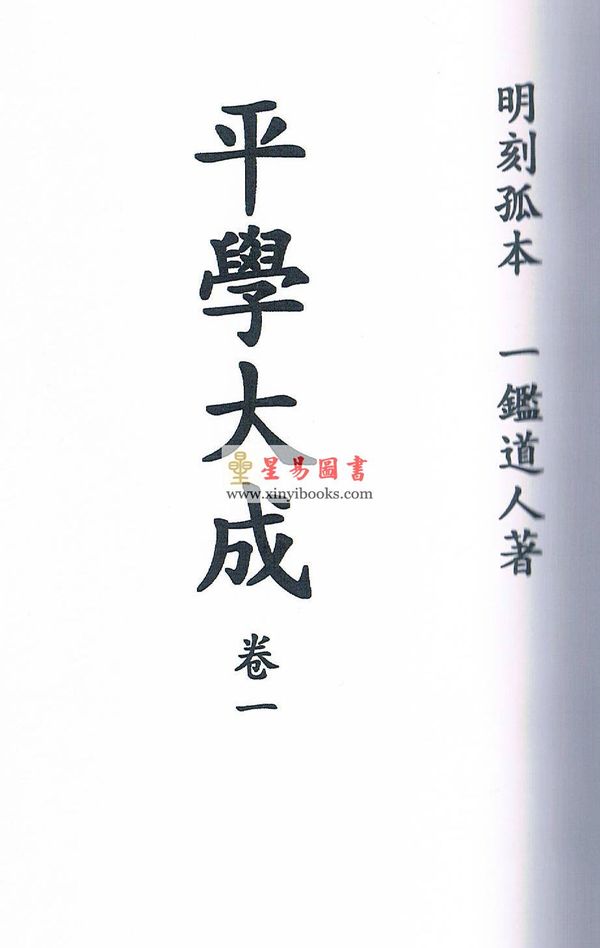 明刻孤本 一鑑道人著
平學大成 卷一
星易圖書
www.xinyibooks.com